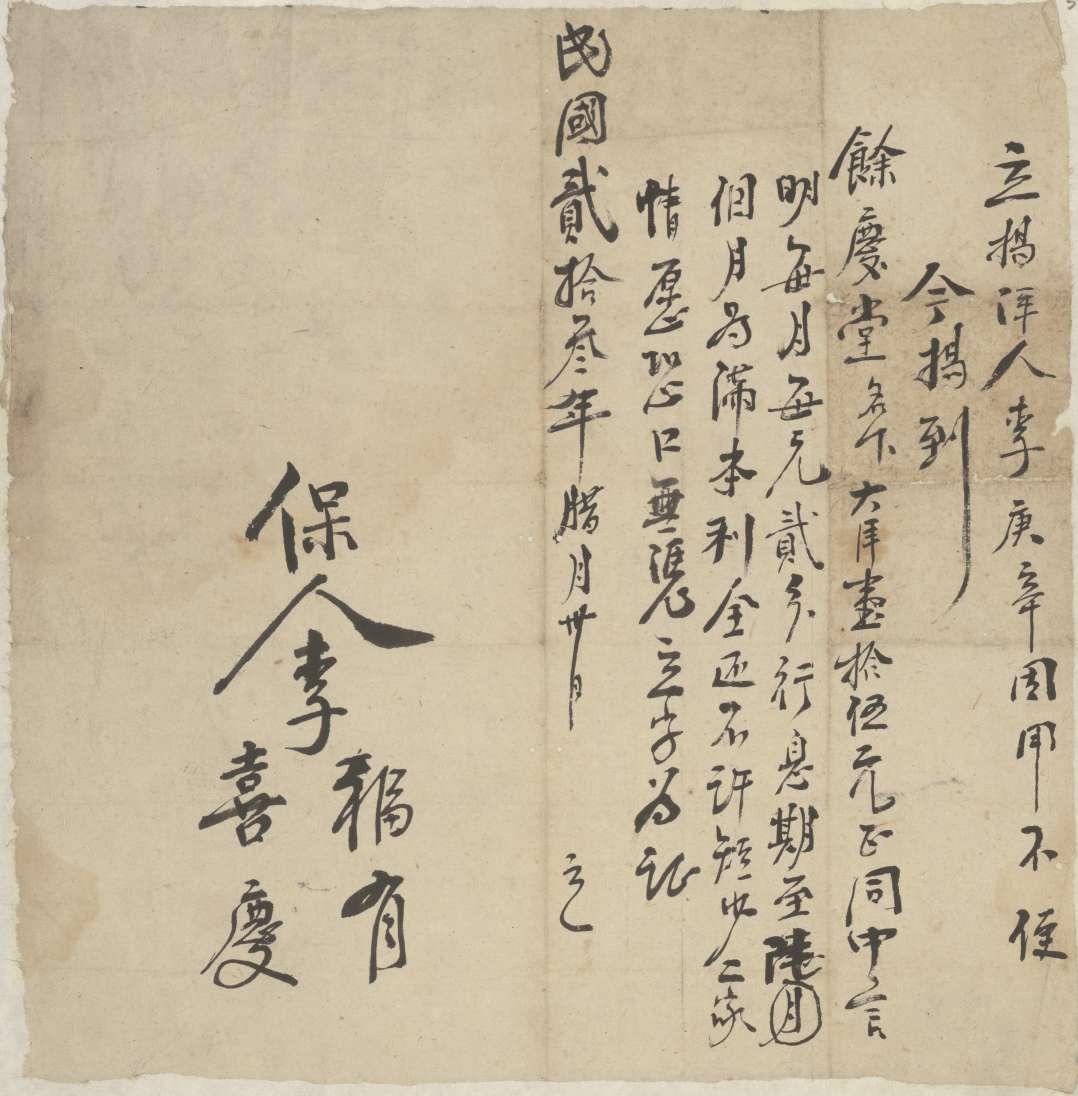 立揭洋人李庚辛因用不便
今揭到
餘慶堂名下大洋壹拾伍元正同中言
明每月每元貳分行息期至陸月
個月为滿本利全还不許短少二家
情愿恐口無憑立字为証
民國貳拾叁年腊月卅日 立
保人李
福有
喜慶